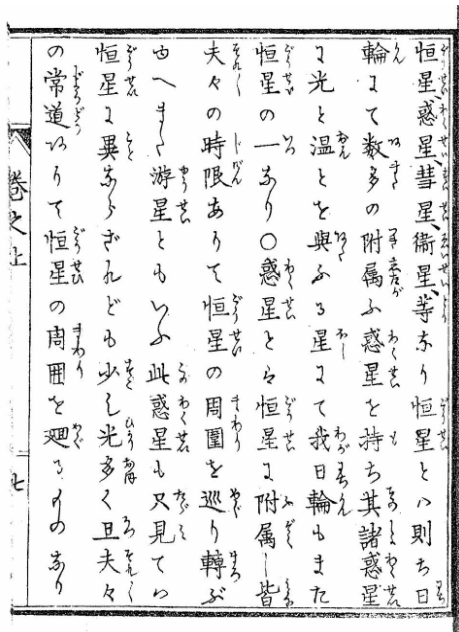 恒星、惑星、彗星、衛星、等なり恒星とハ則ち日
輪にて数多の附属ふ惑星を持ち其諸惑星
に光と温とを與ふる星にて我日輪もまた
恒星の一なり〇惑星とは恒星に附属し皆
夫々の時限ありて恒星の周圍を巡り轉ぶ
ゆへまた游星ともいふ此惑星も只見てハ
恒星に異ならざれども少し光多く且夫々
の常道ありて恒星の周囲を廻るものなり
巻之上
七